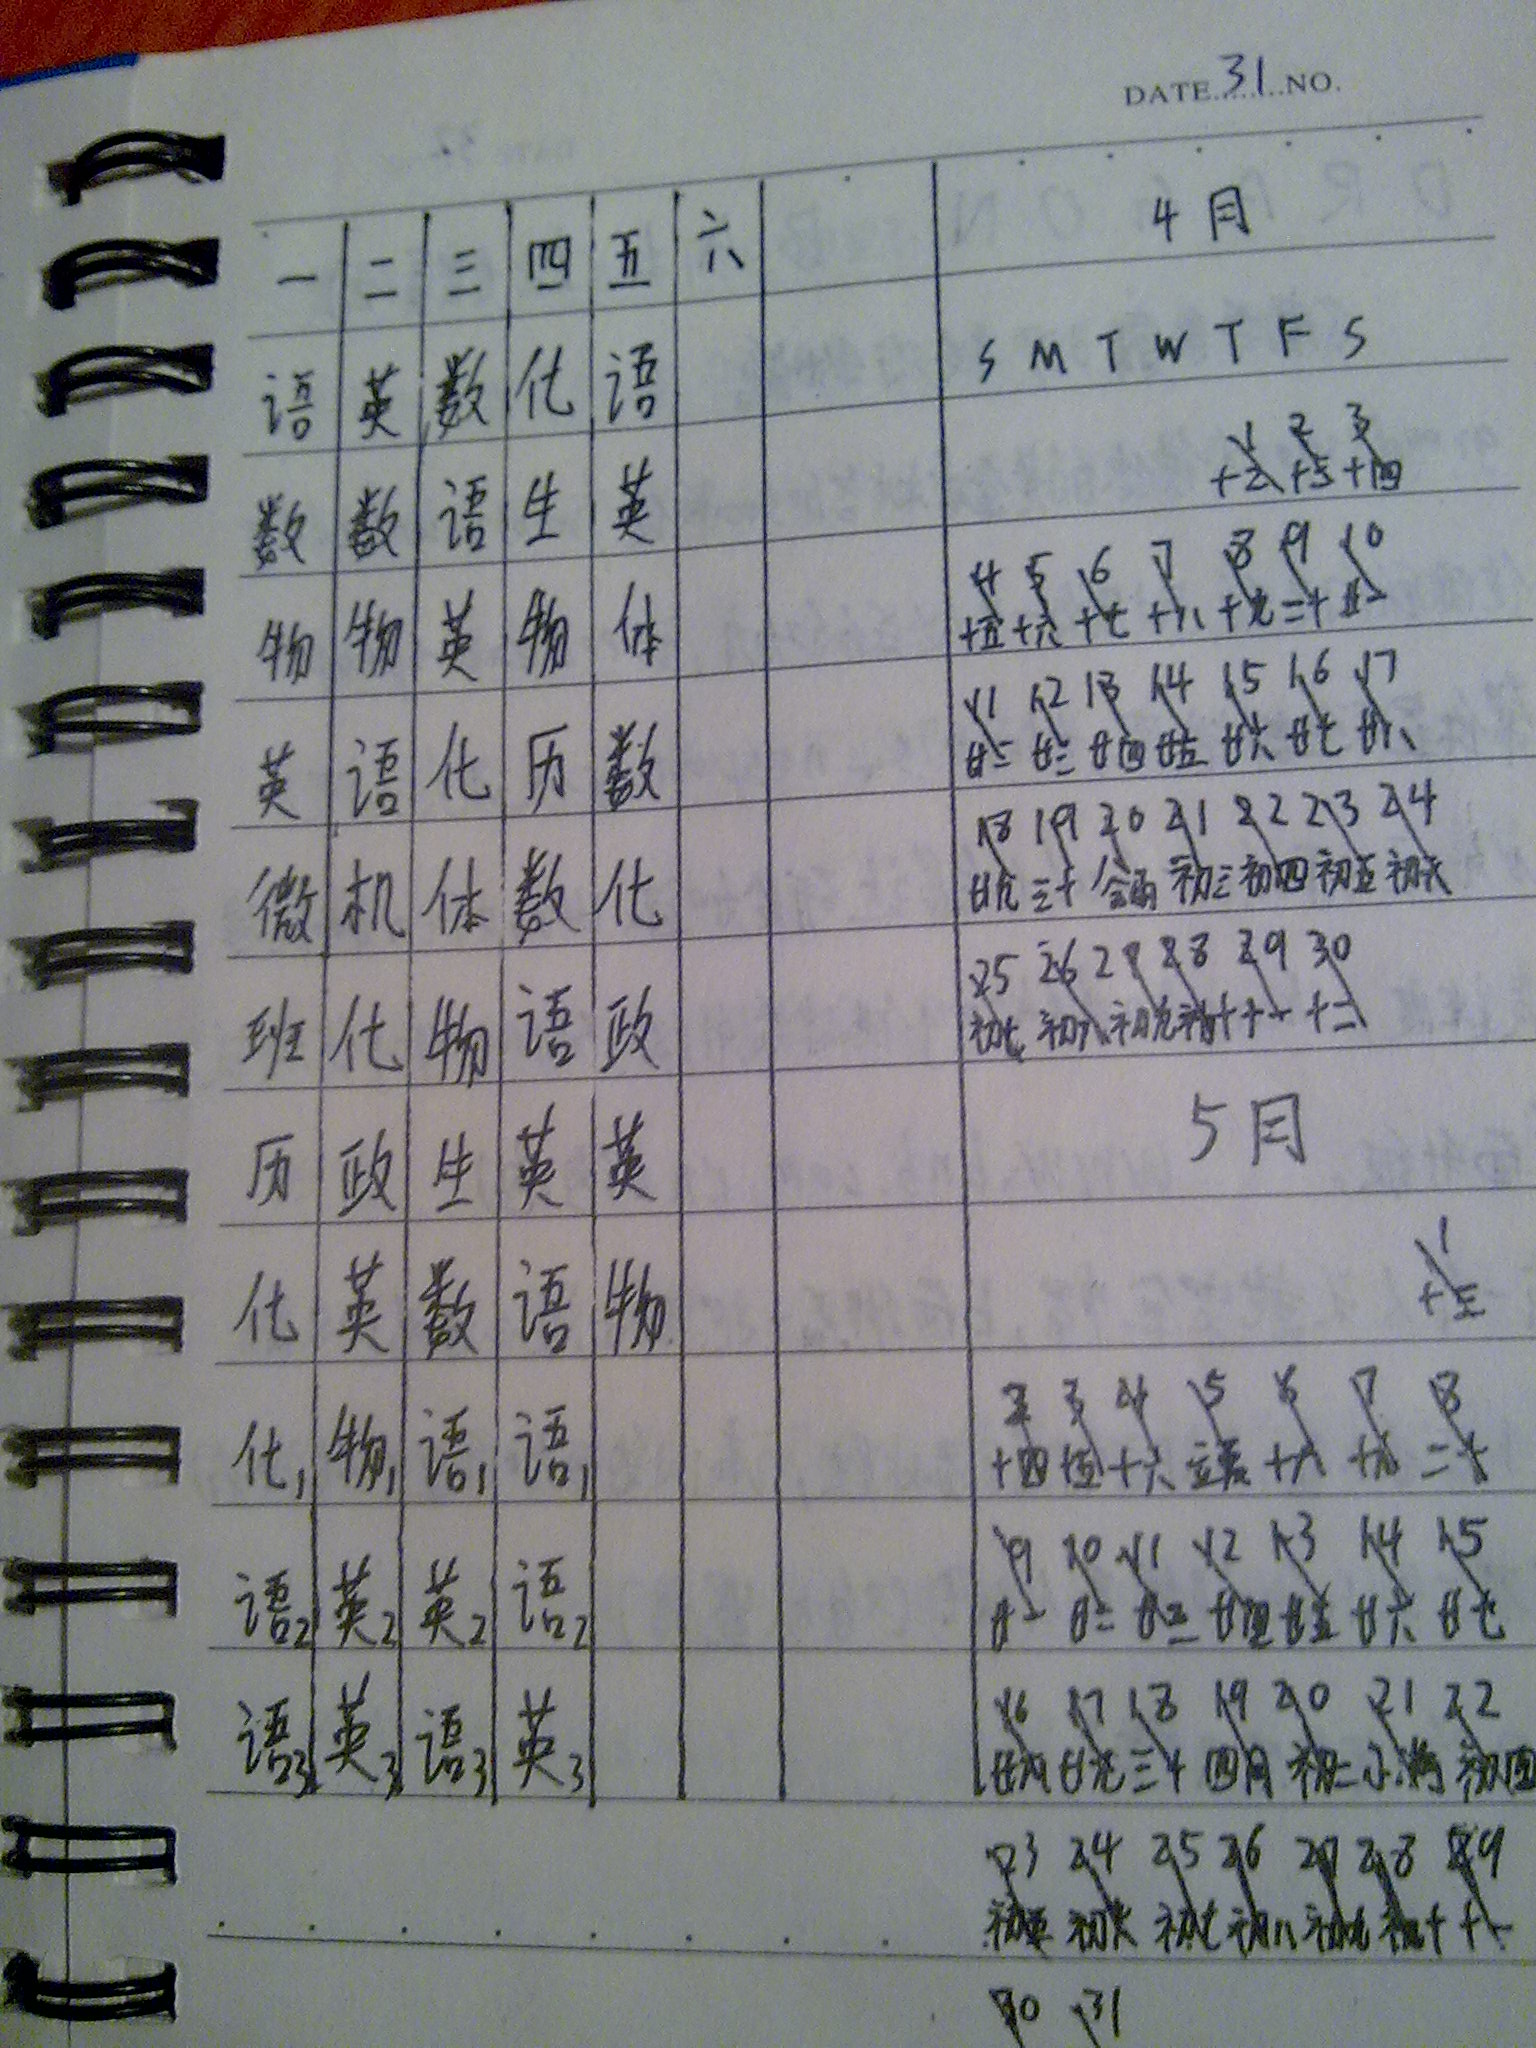 DATE 31 NO.
一 二 三 四 五 六
语 英 数 化 语
数 数 语 生 英
物 物 英 物 体
英 语 化 历 数
微 机 体 数 化
班 化 物 语 政
历 政 生 英 英
化 英 数 语 物
化1 物1 语1 语1
语2 英2 英2 语2
语3 英3 语3 英3
4月
S M T W T F S
1 2 3
十四
4 5 6 7 8 9 10
十五 十六 十七 十八 十九 二十 廿一
11 12 13 14 15 16 17
廿二 廿三 廿四 廿五 廿六 廿七 廿八
18 19 20 21 22 23 24
廿九 三十 初三 初四 初五 初六
25 26 27 28 29 30
初七 初八 初九 初十 十一 十二
5月
1
十三
2 3 4 5 6 7 8
十四 十五 十六 立夏 十八 十九 二十
9 10 11 12 13 14 15
廿一 廿二 廿三 廿四 廿五 廿六 廿七
16 17 18 19 20 21 22
廿八 廿九 三十 四月 初二 小满 初四
23 24 25 26 27 28 29
初五 初六 初七 初八 初九 初十 十一
30 31